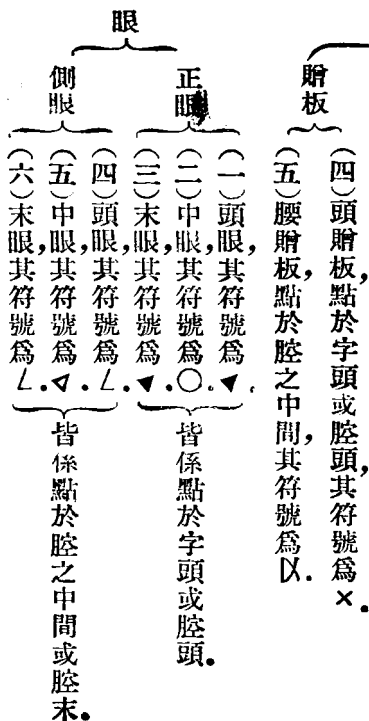 贈板
(四)頭贈板,點於字頭或腔頭,其符號爲×.
(五)腰贈板,點於腔之中間,其符號爲.
眼
正眼
(一)頭眼,其符號爲▼.
(二)中眼,其符號爲○.
(三)末眼,其符號爲▼.
皆係點於字頭或腔頭.
側眼
(四)頭眼,其符號爲∠.
(五)中眼,其符號爲▽.
(六)末眼,其符號爲∠.
皆係點於腔之中間或腔末.